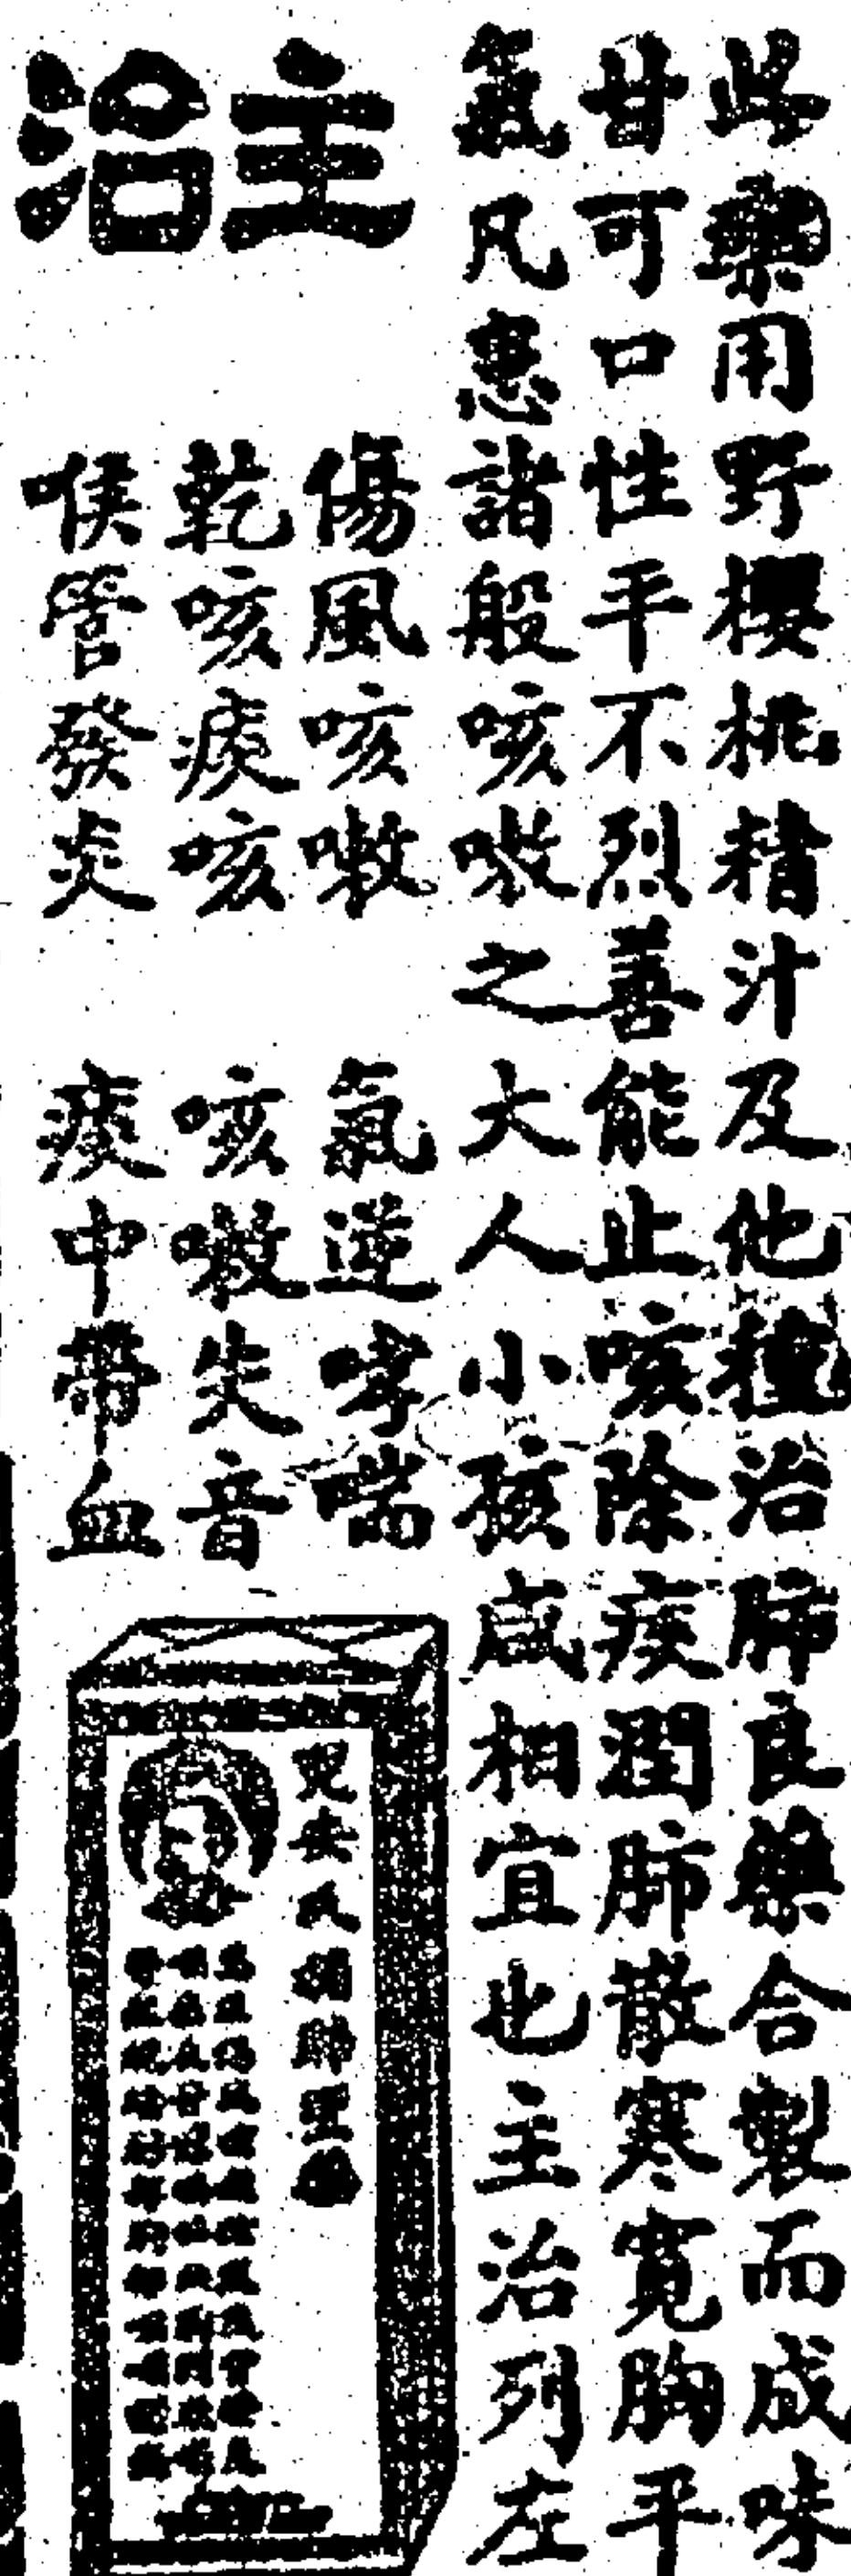 此藥用野櫻桃精汁及他種治肺良藥合製而成味
甘可口性平不烈善能止咳除痰潤肺散寒寬胸平
氣凡患諸般咳嗽之大人小孩咸相宜也主治列左
主治
傷風咳嗽 氣逆哮喘
乾咳痰咳 咳嗽失音
喉管發炎 痰中帶血
兜安氏補肺